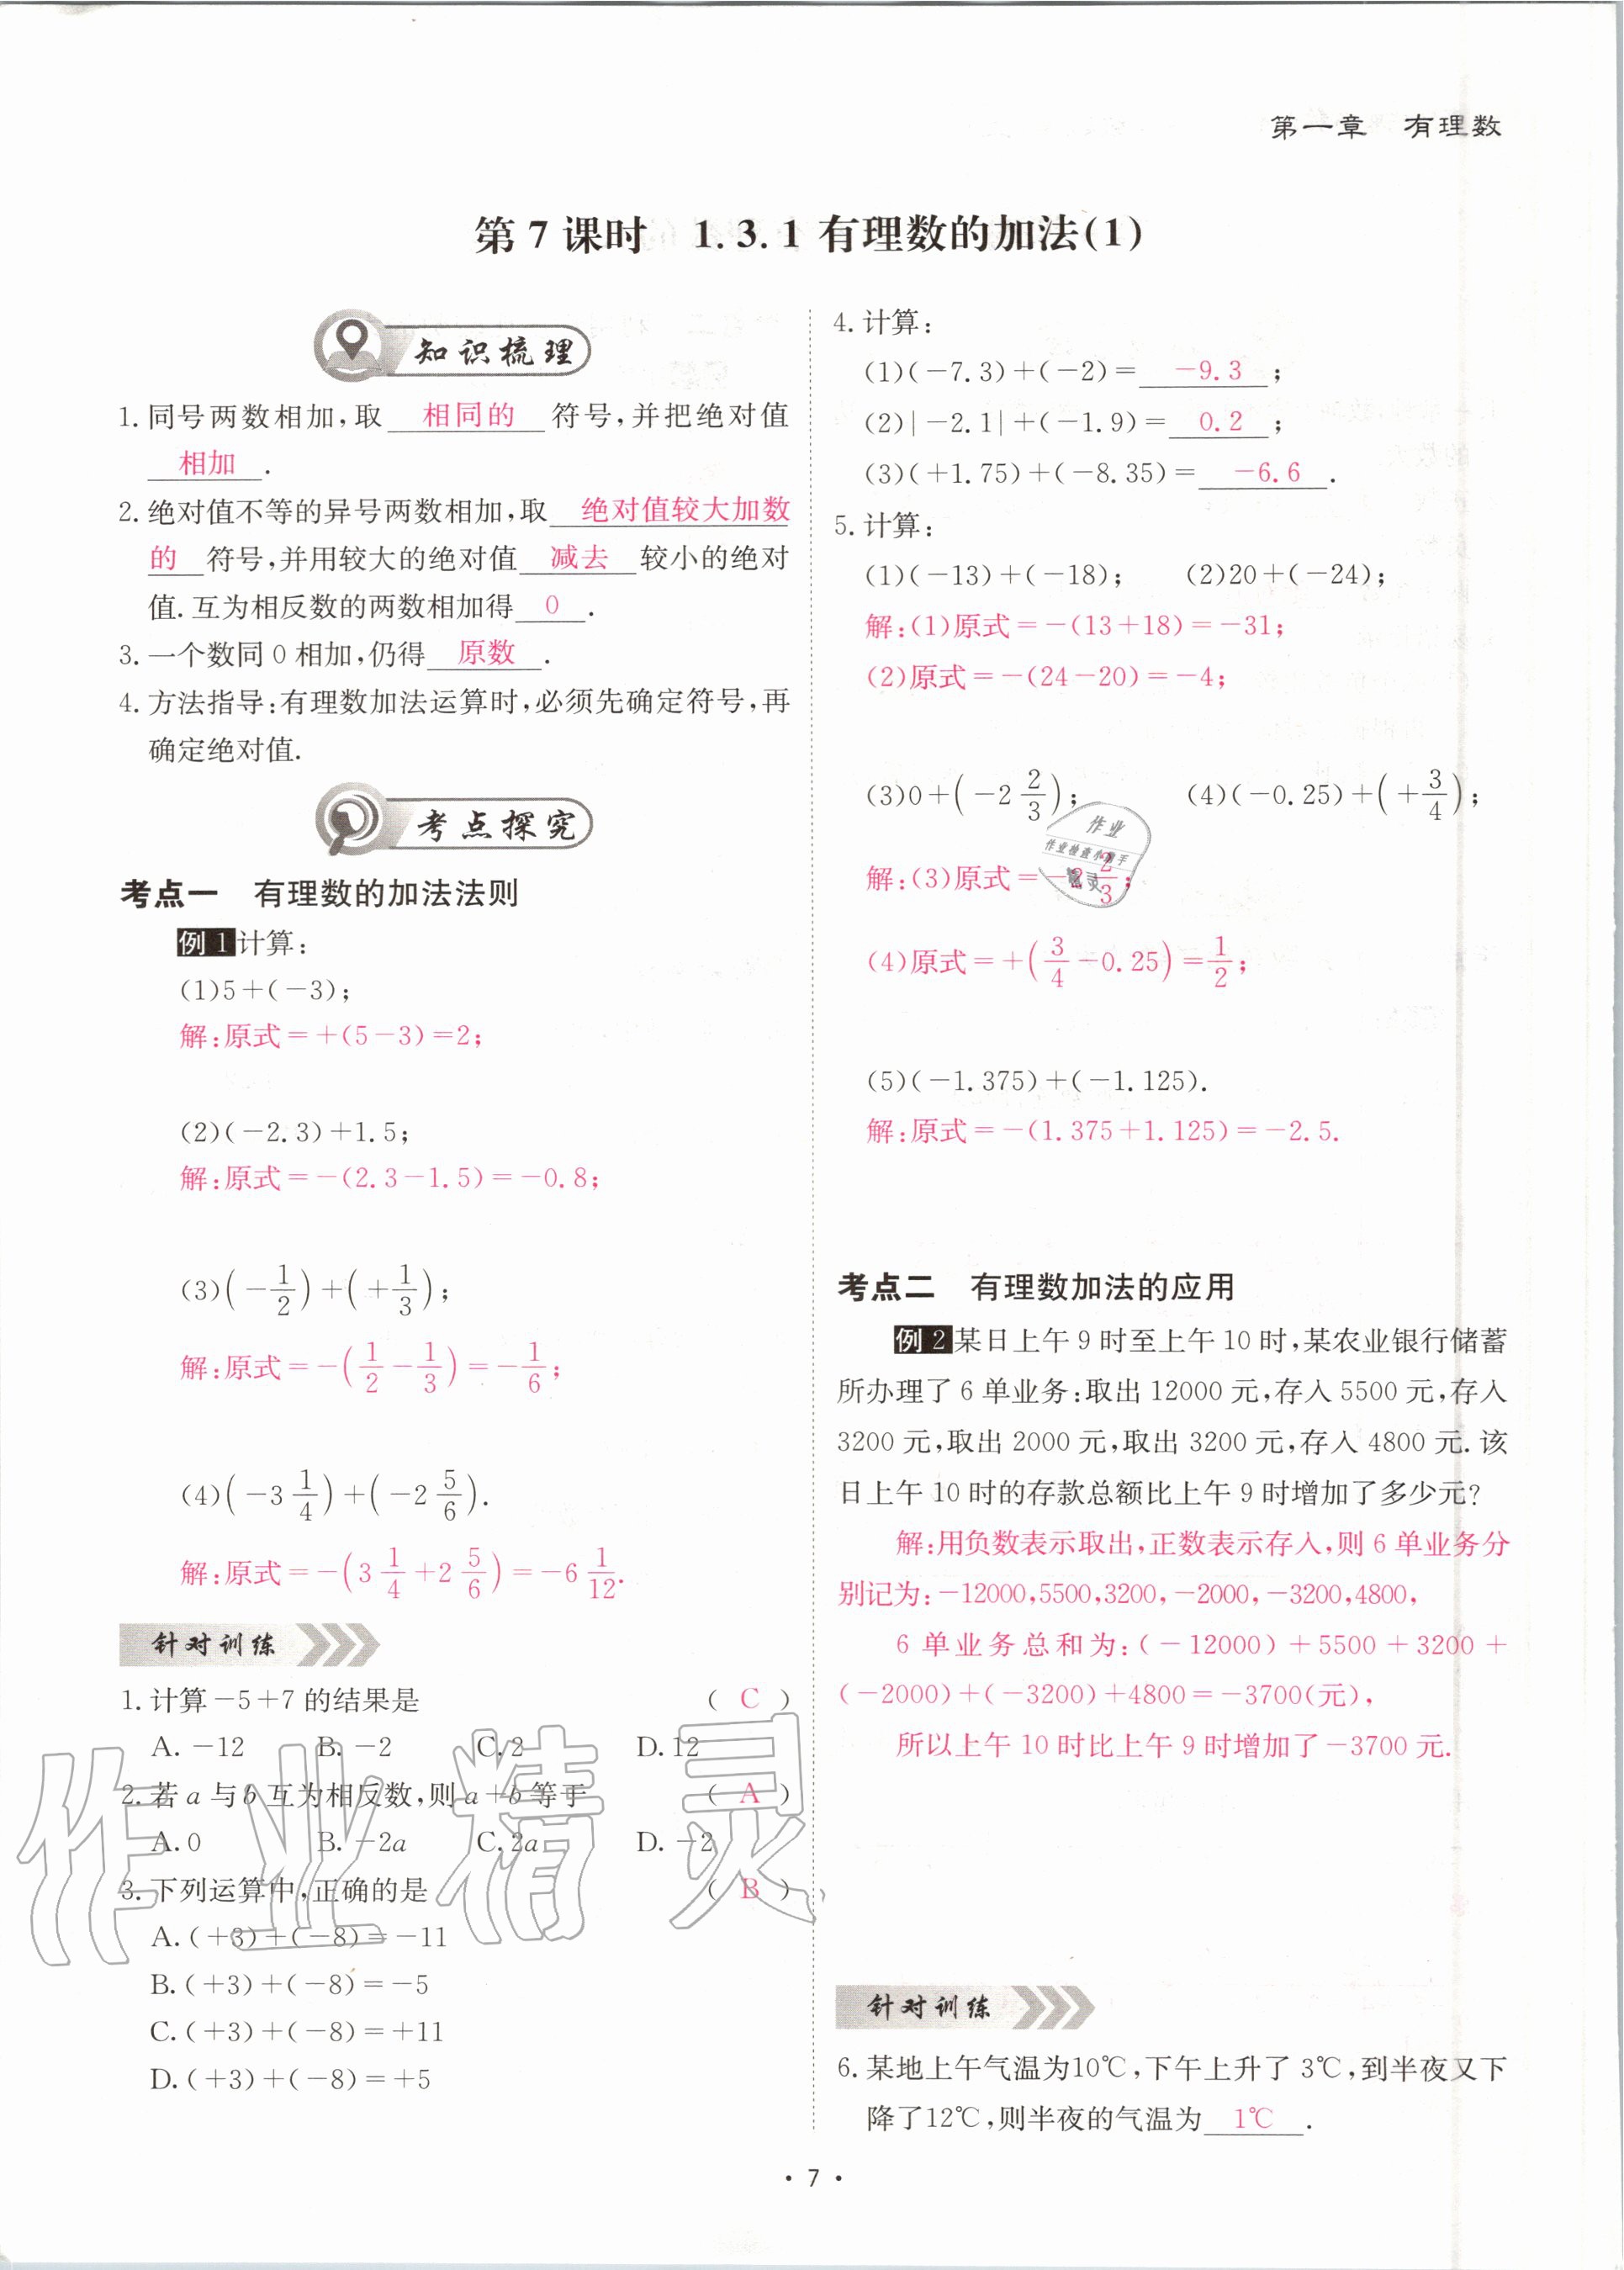 第一章 有理数
第 7 课时 1.3.1 有理数的加法(1)
知识梳理
1. 同号两数相加,取 相同的 符号,并把绝对值
相加 .
2. 绝对值不等的异号两数相加,取 绝对值较大加数
的 符号,并用较大的绝对值 减去 较小的绝对
值. 互为相反数的两数相加得 0 .
3. 一个数同 0 相加,仍得 原数 .
4. 方法指导:有理数加法运算时,必须先确定符号,再
确定绝对值.
考点探究
考点一 有理数的加法法则
例 1 计算:
(1)5+(-3);
解:原式=+(5-3)=2;
(2)(-2.3)+1.5;
解:原式=-(2.3-1.5)=-0.8;
(3)(-1/2)+(+1/3);
解:原式=-(1/2-1/3)=-1/6;
(4)(-3 1/4)+(-2 5/6).
解:原式=-(3 1/4+2 5/6)=-6 1/12.
针对训练
1. 计算-5+7 的结果是 ( C )
A. -12 B. -2 C. 2 D. 12
2. 若 a 与 b 互为相反数,则 a+b 等于 ( A )
A. 0 B. -2a C. 2a D. -2
3. 下列运算中,正确的是 ( B )
A. (+3)+(-8)=-11
B. (+3)+(-8)=-5
C. (+3)+(-8)=+11
D. (+3)+(-8)=+5
4. 计算:
(1)(-7.3)+(-2)= -9.3 ;
(2)|-2.1|+(-1.9)= 0.2 ;
(3)(+1.75)+(-8.35)= -6.6 .
5. 计算:
(1)(-13)+(-18); (2)20+(-24);
解:(1)原式=-(13+18)=-31;
(2)原式=-(24-20)=-4;
(3)0+(-2 2/3); (4)(-0.25)+(+3/4);
解:(3)原式=-2 2/3;
(4)原式=+(3/4-0.25)=1/2;
(5)(-1.375)+(-1.125).
解:原式=-(1.375+1.125)=-2.5.
考点二 有理数加法的应用
例 2 某日上午 9 时至上午 10 时,某农业银行储蓄
所办理了 6 单业务:取出 12000 元,存入 5500 元,存入
3200 元,取出 2000 元,取出 3200 元,存入 4800 元. 该
日上午 10 时的存款总额比上午 9 时增加了多少元?
解:用负数表示取出,正数表示存入,则 6 单业务分
别记为:-12000,5500,3200,-2000,-3200,4800,
6 单业务总和为:(-12000)+5500+3200+
(-2000)+(-3200)+4800=-3700(元),
所以上午 10 时比上午 9 时增加了-3700 元.
针对训练
6. 某地上午气温为10℃,下午上升了 3℃,到半夜又下
降了12℃,则半夜的气温为 1℃ .
• 7 •
作业精灵
作业
作业检查小助手